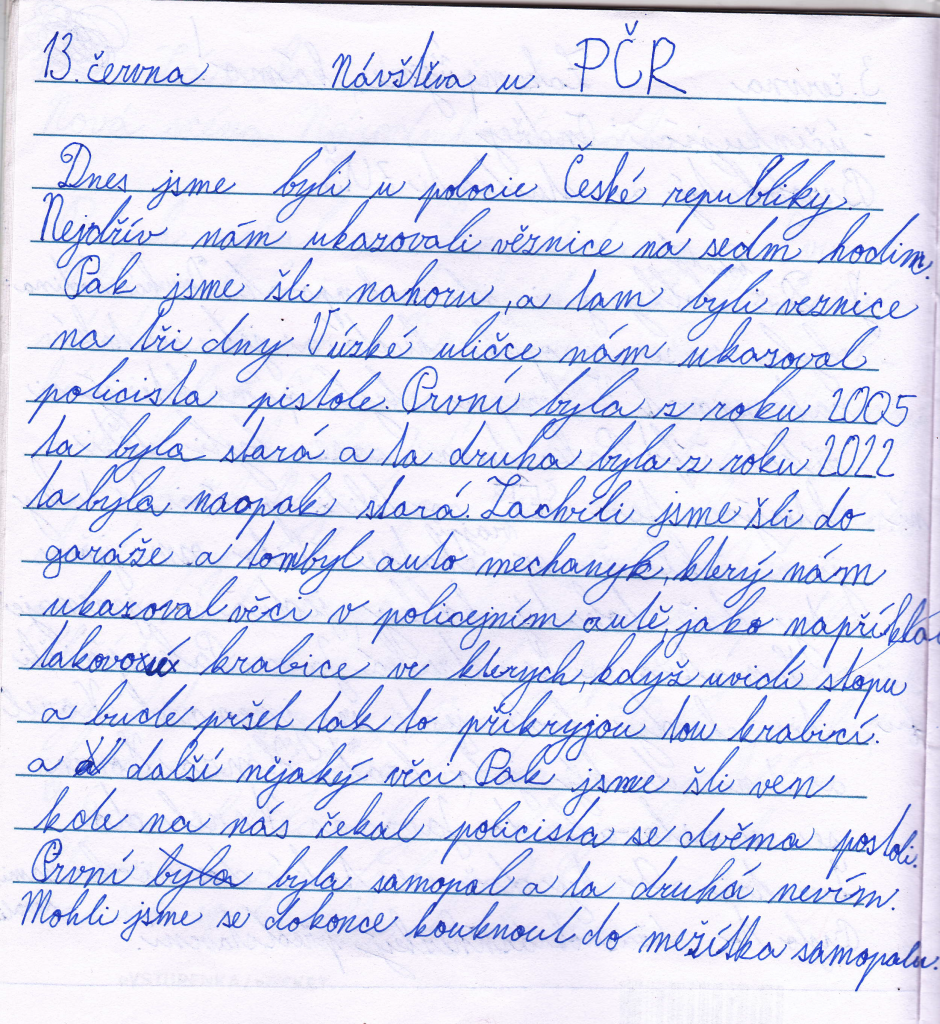 13. června Návštěva u PČR
Dnes jsme byli u polocie České republiky.
Nejdřív nám ukazovali věznice na sedm hodim.
Pak jsme šli nahoru, a tam byli veznice
na tři dny. Vúzké uličce nám ukazoval
policista pistole. První byla z roku 2005
ta byla stará a ta druha byla z roku 2022
ta byla naopak stará. Zachvíli jsme šli do
garáže a tambyl auto mechanyk, který nám
ukazoval věci v policejním autě, jako napříkla
takovou krabice ve kterych, když uvidí stopu
a bude pršet tak to přikryjou tou krabicí.
a další nějaký věci. Pak jsme šli ven
kde na nás čekal policista se dvěma postoli.
První byla byla samopal a ta druhá nevím.
Mohli jsme se dokonce kouknout do mezítka samopalu.